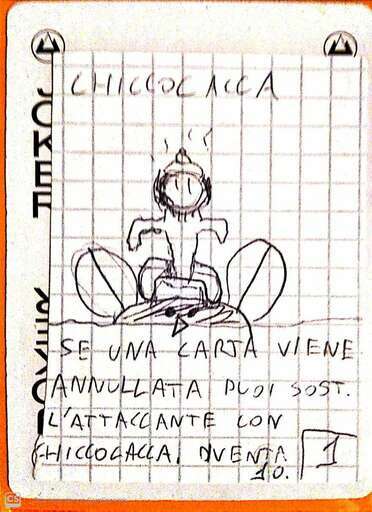 CHICCOCACCA
JOKER
JOKER
SE UNA CARTA VIENE
ANNULLATA PUOI SOST.
L'ATTACCANTE CON
CHICCOCACCA. DVENTA
10.
1
CS